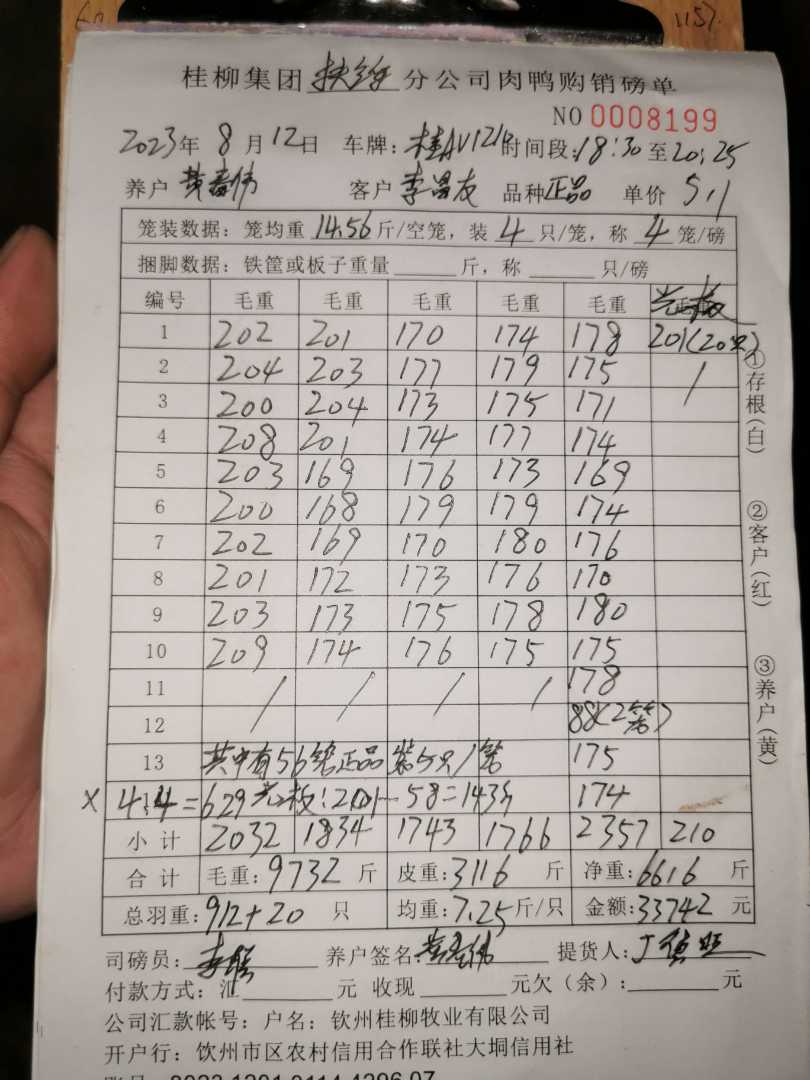 60 1157
桂柳集团 扶绥 分公司肉鸭购销磅单
NO 0008199
2023年 8月12日 车牌: 时间段:18:30至20:25
养户 客户 李昌友 品种正品 单价 5.1
笼装数据：笼均重 14.56 斤/空笼，装 4 只/笼，称 4 笼/磅
捆脚数据：铁筐或板子重量 斤，称 只/磅
编号 毛重 毛重 毛重 毛重 毛重
1 202 201 170 174 178 201(20只)
2 204 203 177 179 175 /
3 200 204 173 175 171
4 208 201 174 177 174
5 203 169 176 173 169
6 200 168 179 179 174
7 202 169 170 180 176
8 201 172 173 176 170
9 203 173 175 178 180
10 209 174 176 175 175
11 / / / / 178
12 88(2笼)
13 其中有56笼正品装5只/笼 175
X 4:4=629 201-58=143斤 174
小计 2032 1834 1743 1766 2357 210
合计 毛重:9732 斤 皮重:3116 斤 净重:6616 斤
总羽重:912+20 只 均重:7.25斤/只 金额:33742 元
司磅员: 养户签名: 提货人:
付款方式：汇 元 收现 元欠（余）: 元
公司汇款帐号：户名：钦州桂柳牧业有限公司
开户行：钦州市区农村信用合作联社大垌信用社
①存根(白)
②客户(红)
③养户(黄)